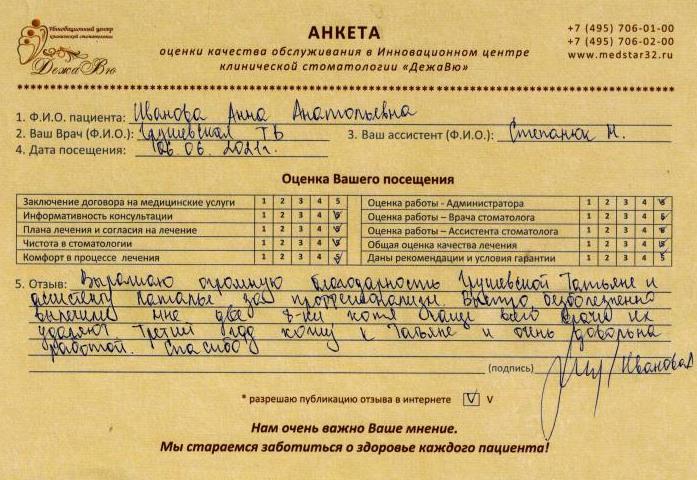 Инновационный центр
клинической стоматологии
ДежаВю
АНКЕТА
оценки качества обслуживания в Инновационном центре
клинической стоматологии «ДежаВю»
+7 (495) 706-01-00
+7 (495) 706-02-00
www.medstar32.ru
1. Ф.И.О. пациента: Иванова Анна Анатольевна
2. Ваш Врач (Ф.И.О.): Грушевская ТВ 3. Ваш ассистент (Ф.И.О.): Степанюк Н.
4. Дата посещения: 06.06.2021г.
Оценка Вашего посещения
Заключение договора на медицинские услуги 1 2 3 4 5
Информативность консультации 1 2 3 4 5
Плана лечения и согласия на лечение 1 2 3 4 5
Чистота в стоматологии 1 2 3 4 5
Комфорт в процессе лечения 1 2 3 4 5
Оценка работы - Администратора 1 2 3 4 5
Оценка работы – Врача стоматолога 1 2 3 4 5
Оценка работы – Ассистента стоматолога 1 2 3 4 5
Общая оценка качества лечения 1 2 3 4 5
Даны рекомендации и условия гарантии 1 2 3 4 5
5. Отзыв: Выражаю огромную благодарность Грушевской Татьяне и
ассистенту Наталье за профессионализм. Быстро, безболезненно
вылечили мне две 8-ки хотя чаще всего врачи их
удаляют Третий год хожу к Татьяне и очень довольна
работой. Спасибо
(подпись) Иванова А
* разрешаю публикацию отзыва в интернете V V
Нам очень важно Ваше мнение.
Мы стараемся заботиться о здоровье каждого пациента!